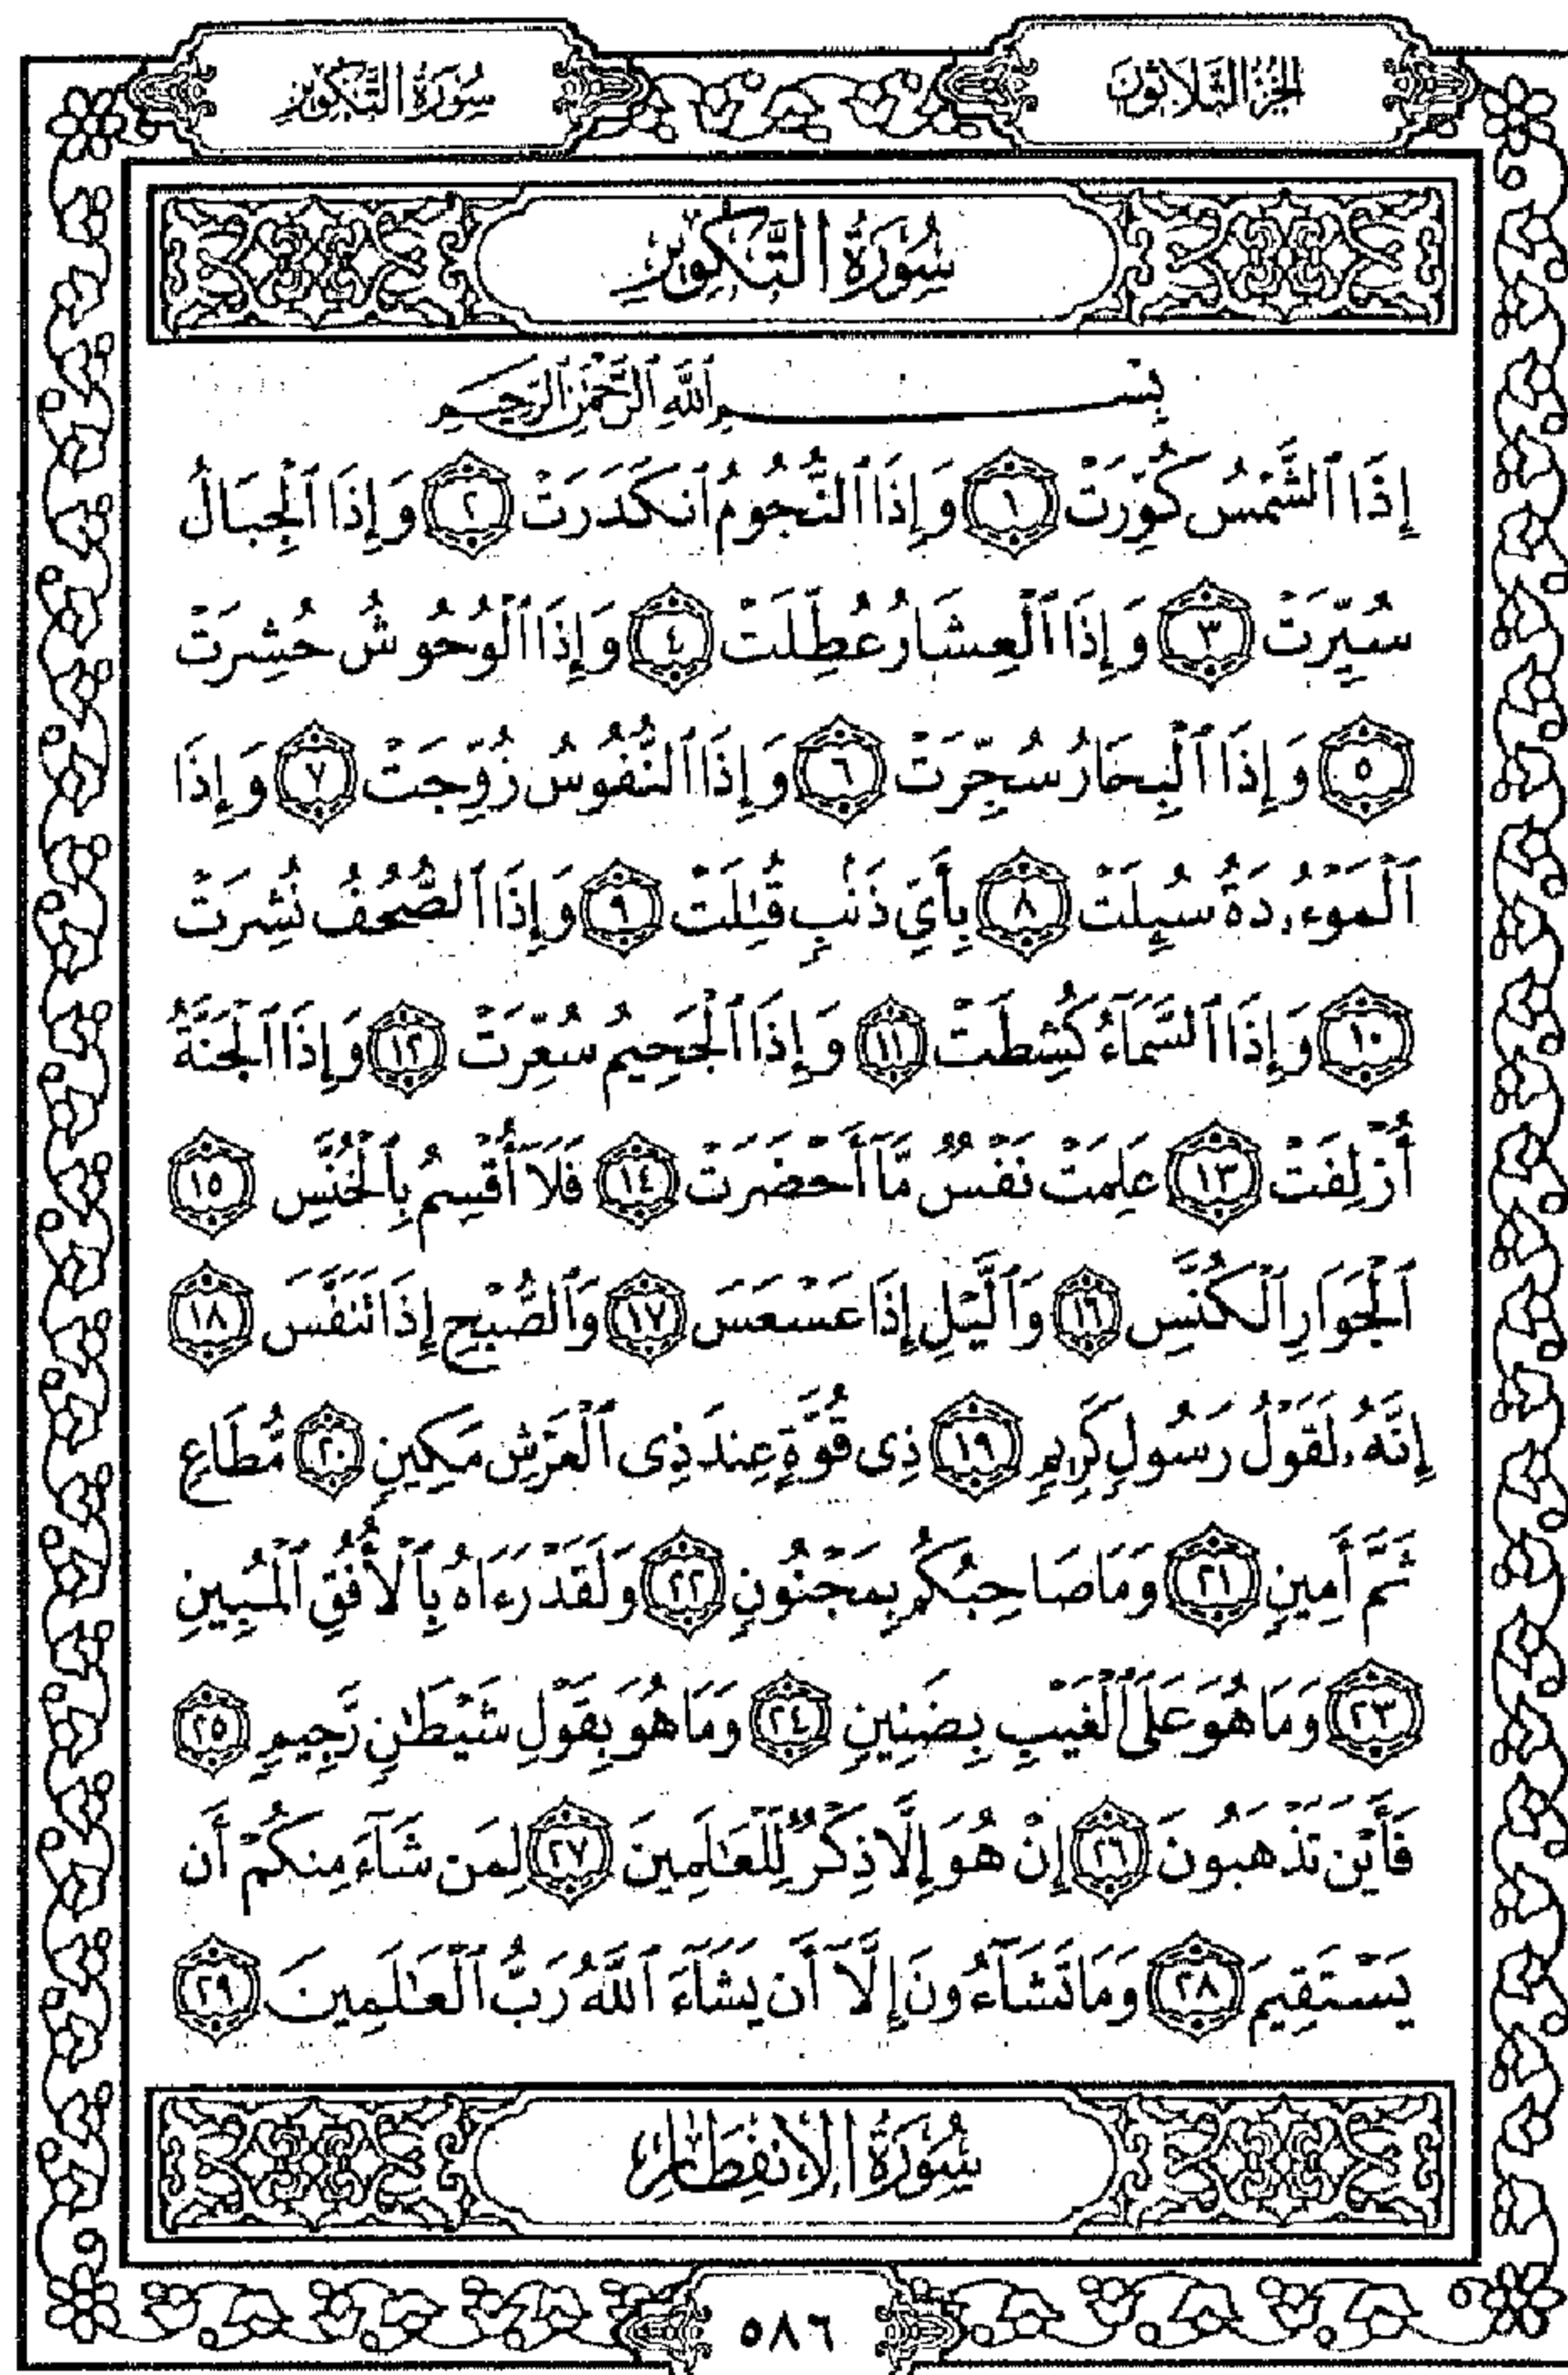 الجزء الثلاثون
سورة التكوير
سُورَةُ التَّكْوِيرِ
بِسْمِ ٱللَّهِ ٱلرَّحْمَٰنِ ٱلرَّحِيمِ
إِذَا ٱلشَّمْسُ كُوِّرَتْ ١ وَإِذَا ٱلنُّجُومُ ٱنكَدَرَتْ ٢ وَإِذَا ٱلْجِبَالُ
سُيِّرَتْ ٣ وَإِذَا ٱلْعِشَارُ عُطِّلَتْ ٤ وَإِذَا ٱلْوُحُوشُ حُشِرَتْ
٥ وَإِذَا ٱلْبِحَارُ سُجِّرَتْ ٦ وَإِذَا ٱلنُّفُوسُ زُوِّجَتْ ٧ وَإِذَا
ٱلْمَوْءُۥدَةُ سُئِلَتْ ٨ بِأَيِّ ذَنۢبٍ قُتِلَتْ ٩ وَإِذَا ٱلصُّحُفُ نُشِرَتْ
١٠ وَإِذَا ٱلسَّمَآءُ كُشِطَتْ ١١ وَإِذَا ٱلْجَحِيمُ سُعِّرَتْ ١٢ وَإِذَا ٱلْجَنَّةُ
أُزْلِفَتْ ١٣ عَلِمَتْ نَفْسٌ مَّآ أَحْضَرَتْ ١٤ فَلَآ أُقْسِمُ بِٱلْخُنَّسِ ١٥
ٱلْجَوَارِ ٱلْكُنَّسِ ١٦ وَٱلَّيْلِ إِذَا عَسْعَسَ ١٧ وَٱلصُّبْحِ إِذَا تَنَفَّسَ ١٨
إِنَّهُۥ لَقَوْلُ رَسُولٍ كَرِيمٍ ١٩ ذِى قُوَّةٍ عِندَ ذِى ٱلْعَرْشِ مَكِينٍ ٢٠ مُّطَاعٍ
ثَمَّ أَمِينٍ ٢١ وَمَا صَاحِبُكُم بِمَجْنُونٍ ٢٢ وَلَقَدْ رَءَاهُ بِٱلْأُفُقِ ٱلْمُبِينِ
٢٣ وَمَا هُوَ عَلَى ٱلْغَيْبِ بِضَنِينٍ ٢٤ وَمَا هُوَ بِقَوْلِ شَيْطَٰنٍ رَّجِيمٍ ٢٥
فَأَيْنَ تَذْهَبُونَ ٢٦ إِنْ هُوَ إِلَّا ذِكْرٌ لِّلْعَٰلَمِينَ ٢٧ لِمَن شَآءَ مِنكُمْ أَن
يَسْتَقِيمَ ٢٨ وَمَا تَشَآءُونَ إِلَّآ أَن يَشَآءَ ٱللَّهُ رَبُّ ٱلْعَٰلَمِينَ ٢٩
سُورَةُ الِانفِطَارِ
٥٨٦